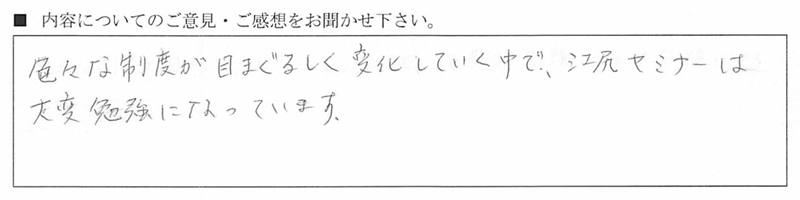 ■ 内容についてのご意見・ご感想をお聞かせ下さい。
色々な制度が目まぐるしく変化していく中で、江尻セミナーは
大変勉強になっています。